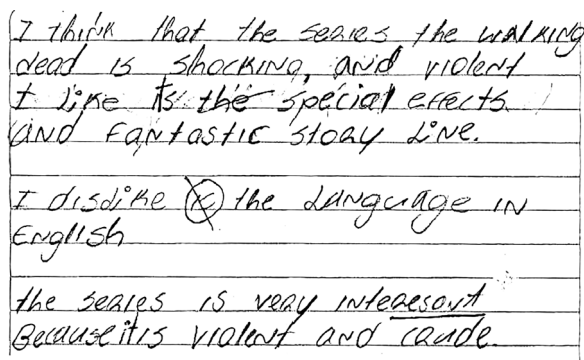 I think that the series the walking
dead is shocking, and violent
I like its the special effects.
and fantastic story line.
I dislike the language in
English
the series is very interesant
Because it is violent and caude.